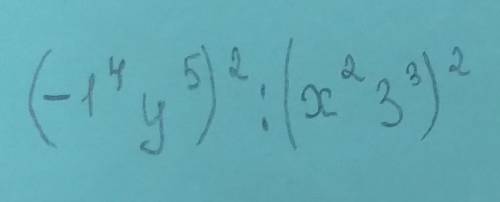 (-1⁴ y⁵)² : (x² 3³)²